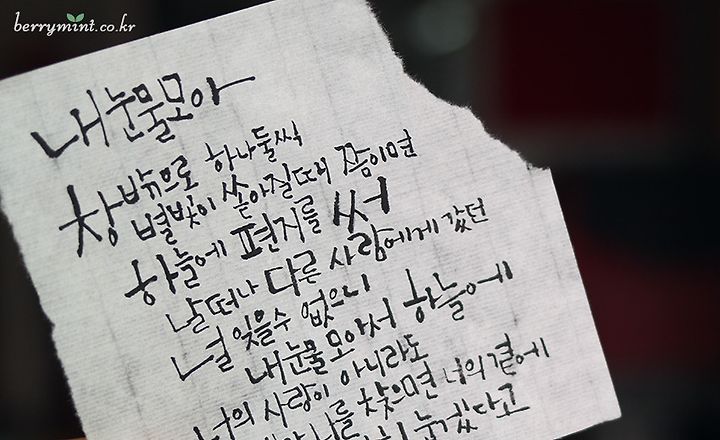 berrymint.co.kr
내눈물모아
창밖으로 하나둘씩
별빛이 쏟아질때 쯤이면
하늘에 편지를 써
날 떠나 다른 사람에게 갔던
널 잊을수 없으니
내눈물 모아서 하늘에
너의 사랑이 아니라도
나를 찾으면 너의곁에
눕겠다고